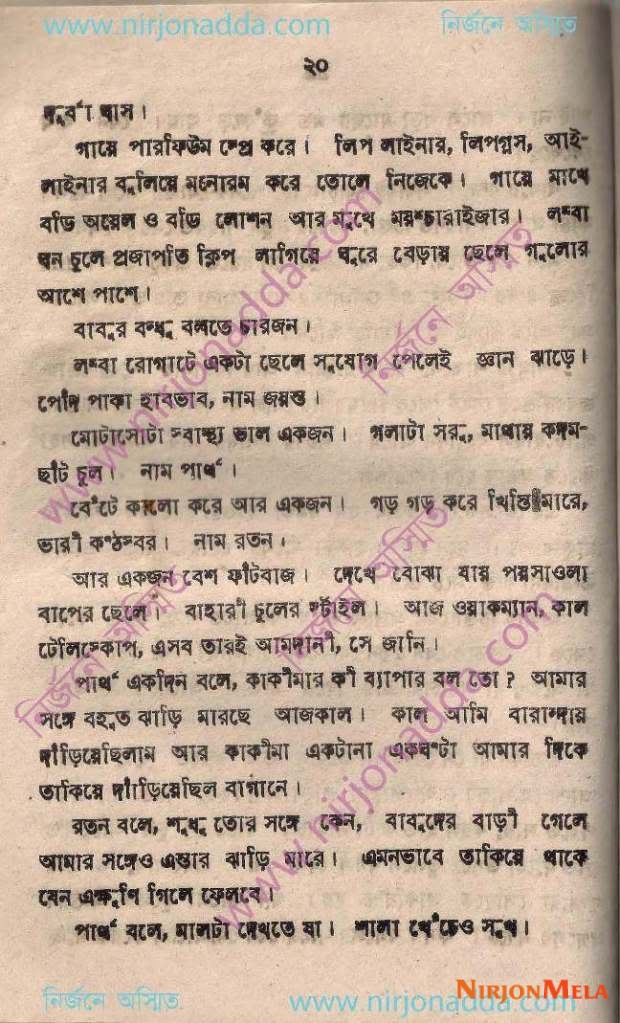 www.nirjonadda.com নির্জনে অস্মিত
২০
দূর্বা ঘাস।
গায়ে পারফিউম স্প্রে করে। লিপ লাইনার, লিপগ্লস, আই-
লাইনার বুলিয়ে মনোরম করে তোলে নিজেকে। গায়ে মাখে
বডি অয়েল ও বডি লোশন আর মুখে ময়শ্চারাইজার। লম্বা
ঘন চুলে প্রজাপতি ক্লিপ লাগিয়ে ঘুরে বেড়ায় ছেলে গুলোর
আশে পাশে।
বাবুর বন্ধু বলতে চারজন।
লম্বা রোগাটে একটা ছেলে সুযোগ পেলেই জ্ঞান ঝাড়ে।
পেদি পাকা হাবভাব, নাম জয়ন্ত।
মোটাসোটা স্বাস্থ্য ভাল একজন। গলাটা সরু, মাথায় কদম-
ছাঁট চুল। নাম পার্থ।
বেঁটে কালো করে আর একজন। গড় গড় করে খিস্তি মারে,
ভারী কণ্ঠস্বর। নাম রতন।
আর একজন বেশ ফাঁটবাজ। দেখে বোঝা যায় পয়সাওলা
বাপের ছেলে। বাহারী চুলের স্টাইল। আজ ওয়াকম্যান, কাল
টেলিস্কোপ, এসব তারই আমদানী, সে জানি।
পার্থ একদিন বলে, কাকীমার কী ব্যাপার বল তো? আমার
সঙ্গে বহুত ঝাড়ি মারছে আজকাল। কাল আমি বারান্দায়
দাঁড়িয়েছিলাম আর কাকীমা একটানা একঘণ্টা আমার দিকে
তাকিয়ে দাঁড়িয়েছিল বাগানে।
রতন বলে, শুধু তোর সঙ্গে কেন, বাবুদের বাড়ী গেলে
আমার সঙ্গেও এন্তার ঝাড়ি মারে। এমনভাবে তাকিয়ে থাকে
যেন এক্ষুণি গিলে ফেলবে।
পার্থ বলে, মালটা দেখতে যা। শালা খেঁচেও সুখ।
NIRJONMELA
নির্জনে অস্মিত www.nirjonadda.com